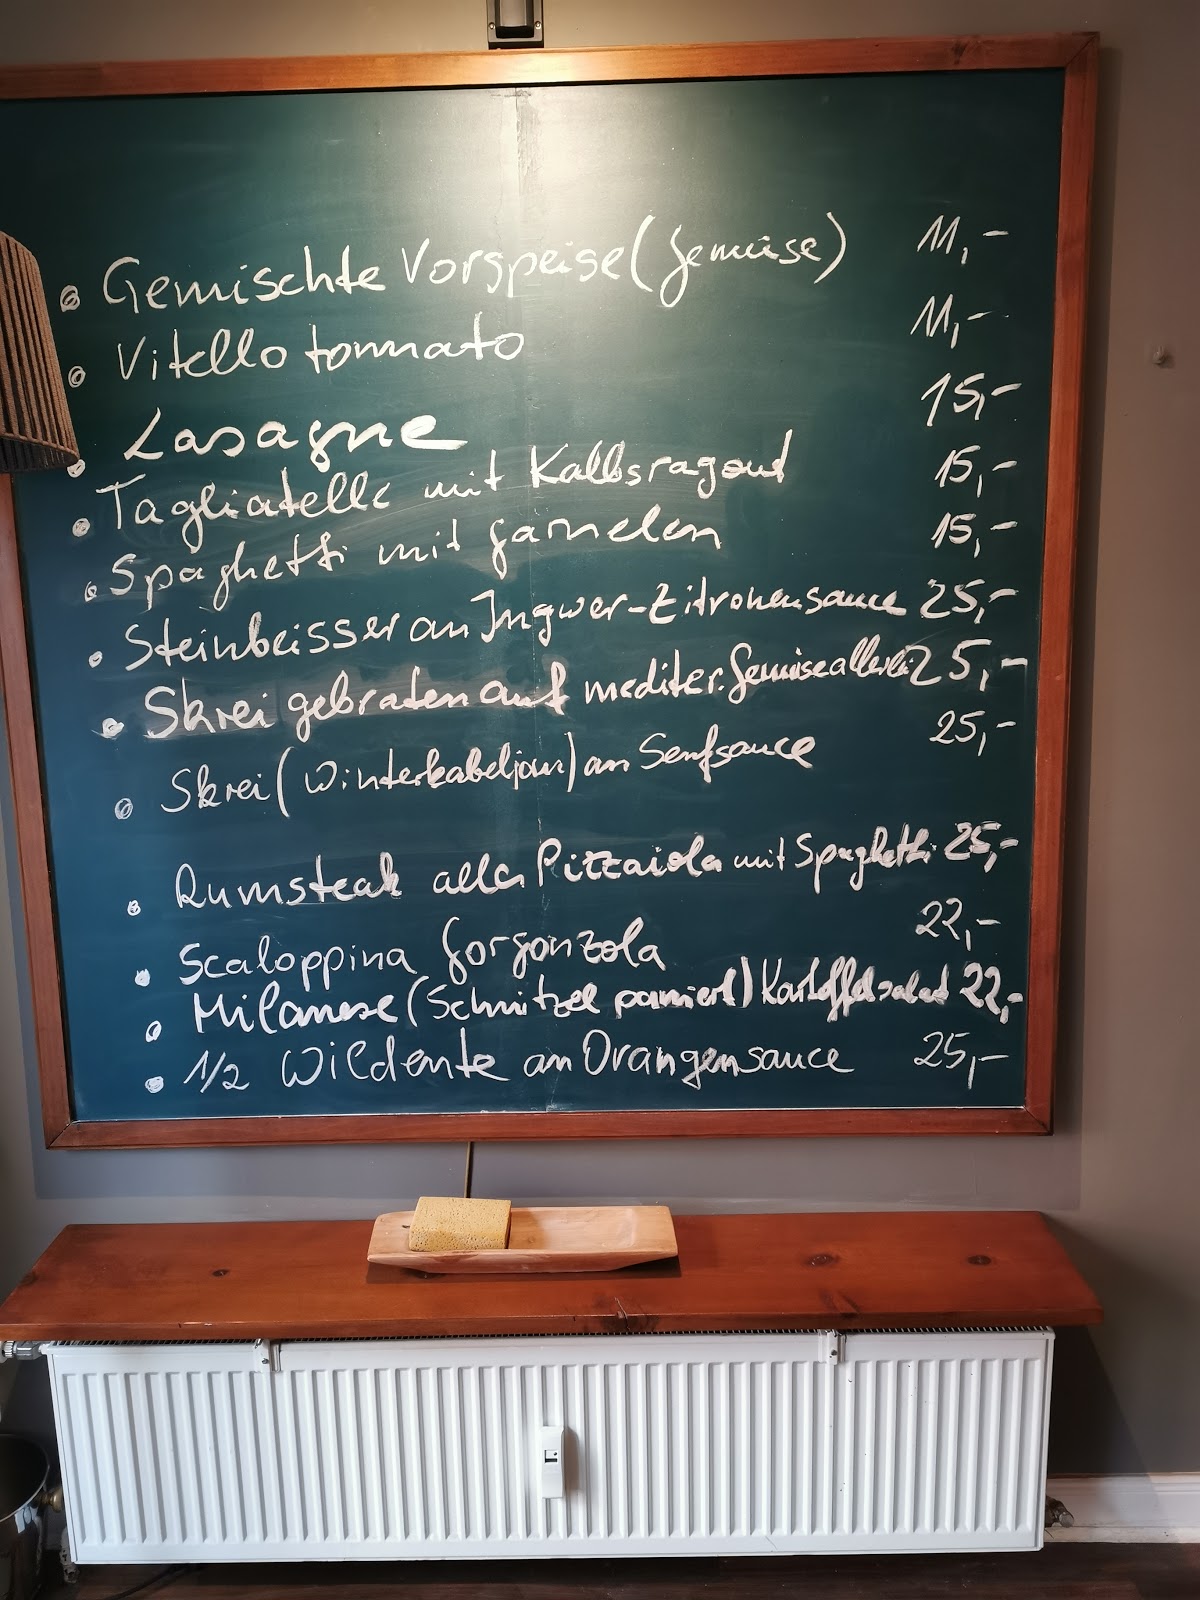 Gemischte Vorspeise (Gemüse) 11,-
Vitello tonnato 11,-
Lasagne 15,-
Tagliatelle mit Kalbsragout 15,-
Spaghetti mit Garnelen 15,-
Steinbeisser an Ingwer-Zitronensauce 25,-
Skrei gebraten auf mediter. Gemüseallerlei 25,-
Skrei (Winterkabeljau) an Senfsauce 25,-
Rumsteak alla Pizzaiola mit Spaghetti 25,-
Scaloppina Gorgonzola 22,-
Milanese (Schnitzel paniert) Kartoffelsalat 22,-
1/2 Wildente an Orangensauce 25,-